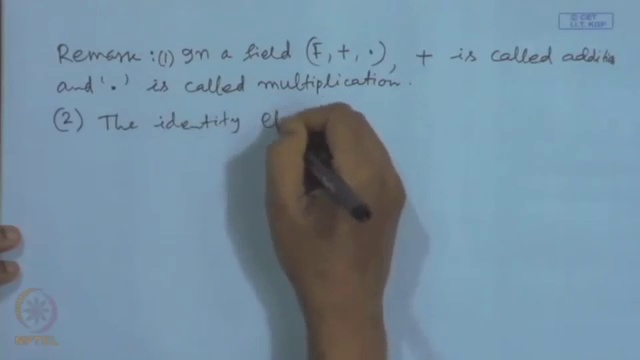 © CET
I.I.T. KGP
Remark : (1) In a field (F, +, ·), + is called additio
and '·' is called multiplication.
(2) The identity el
NPTEL